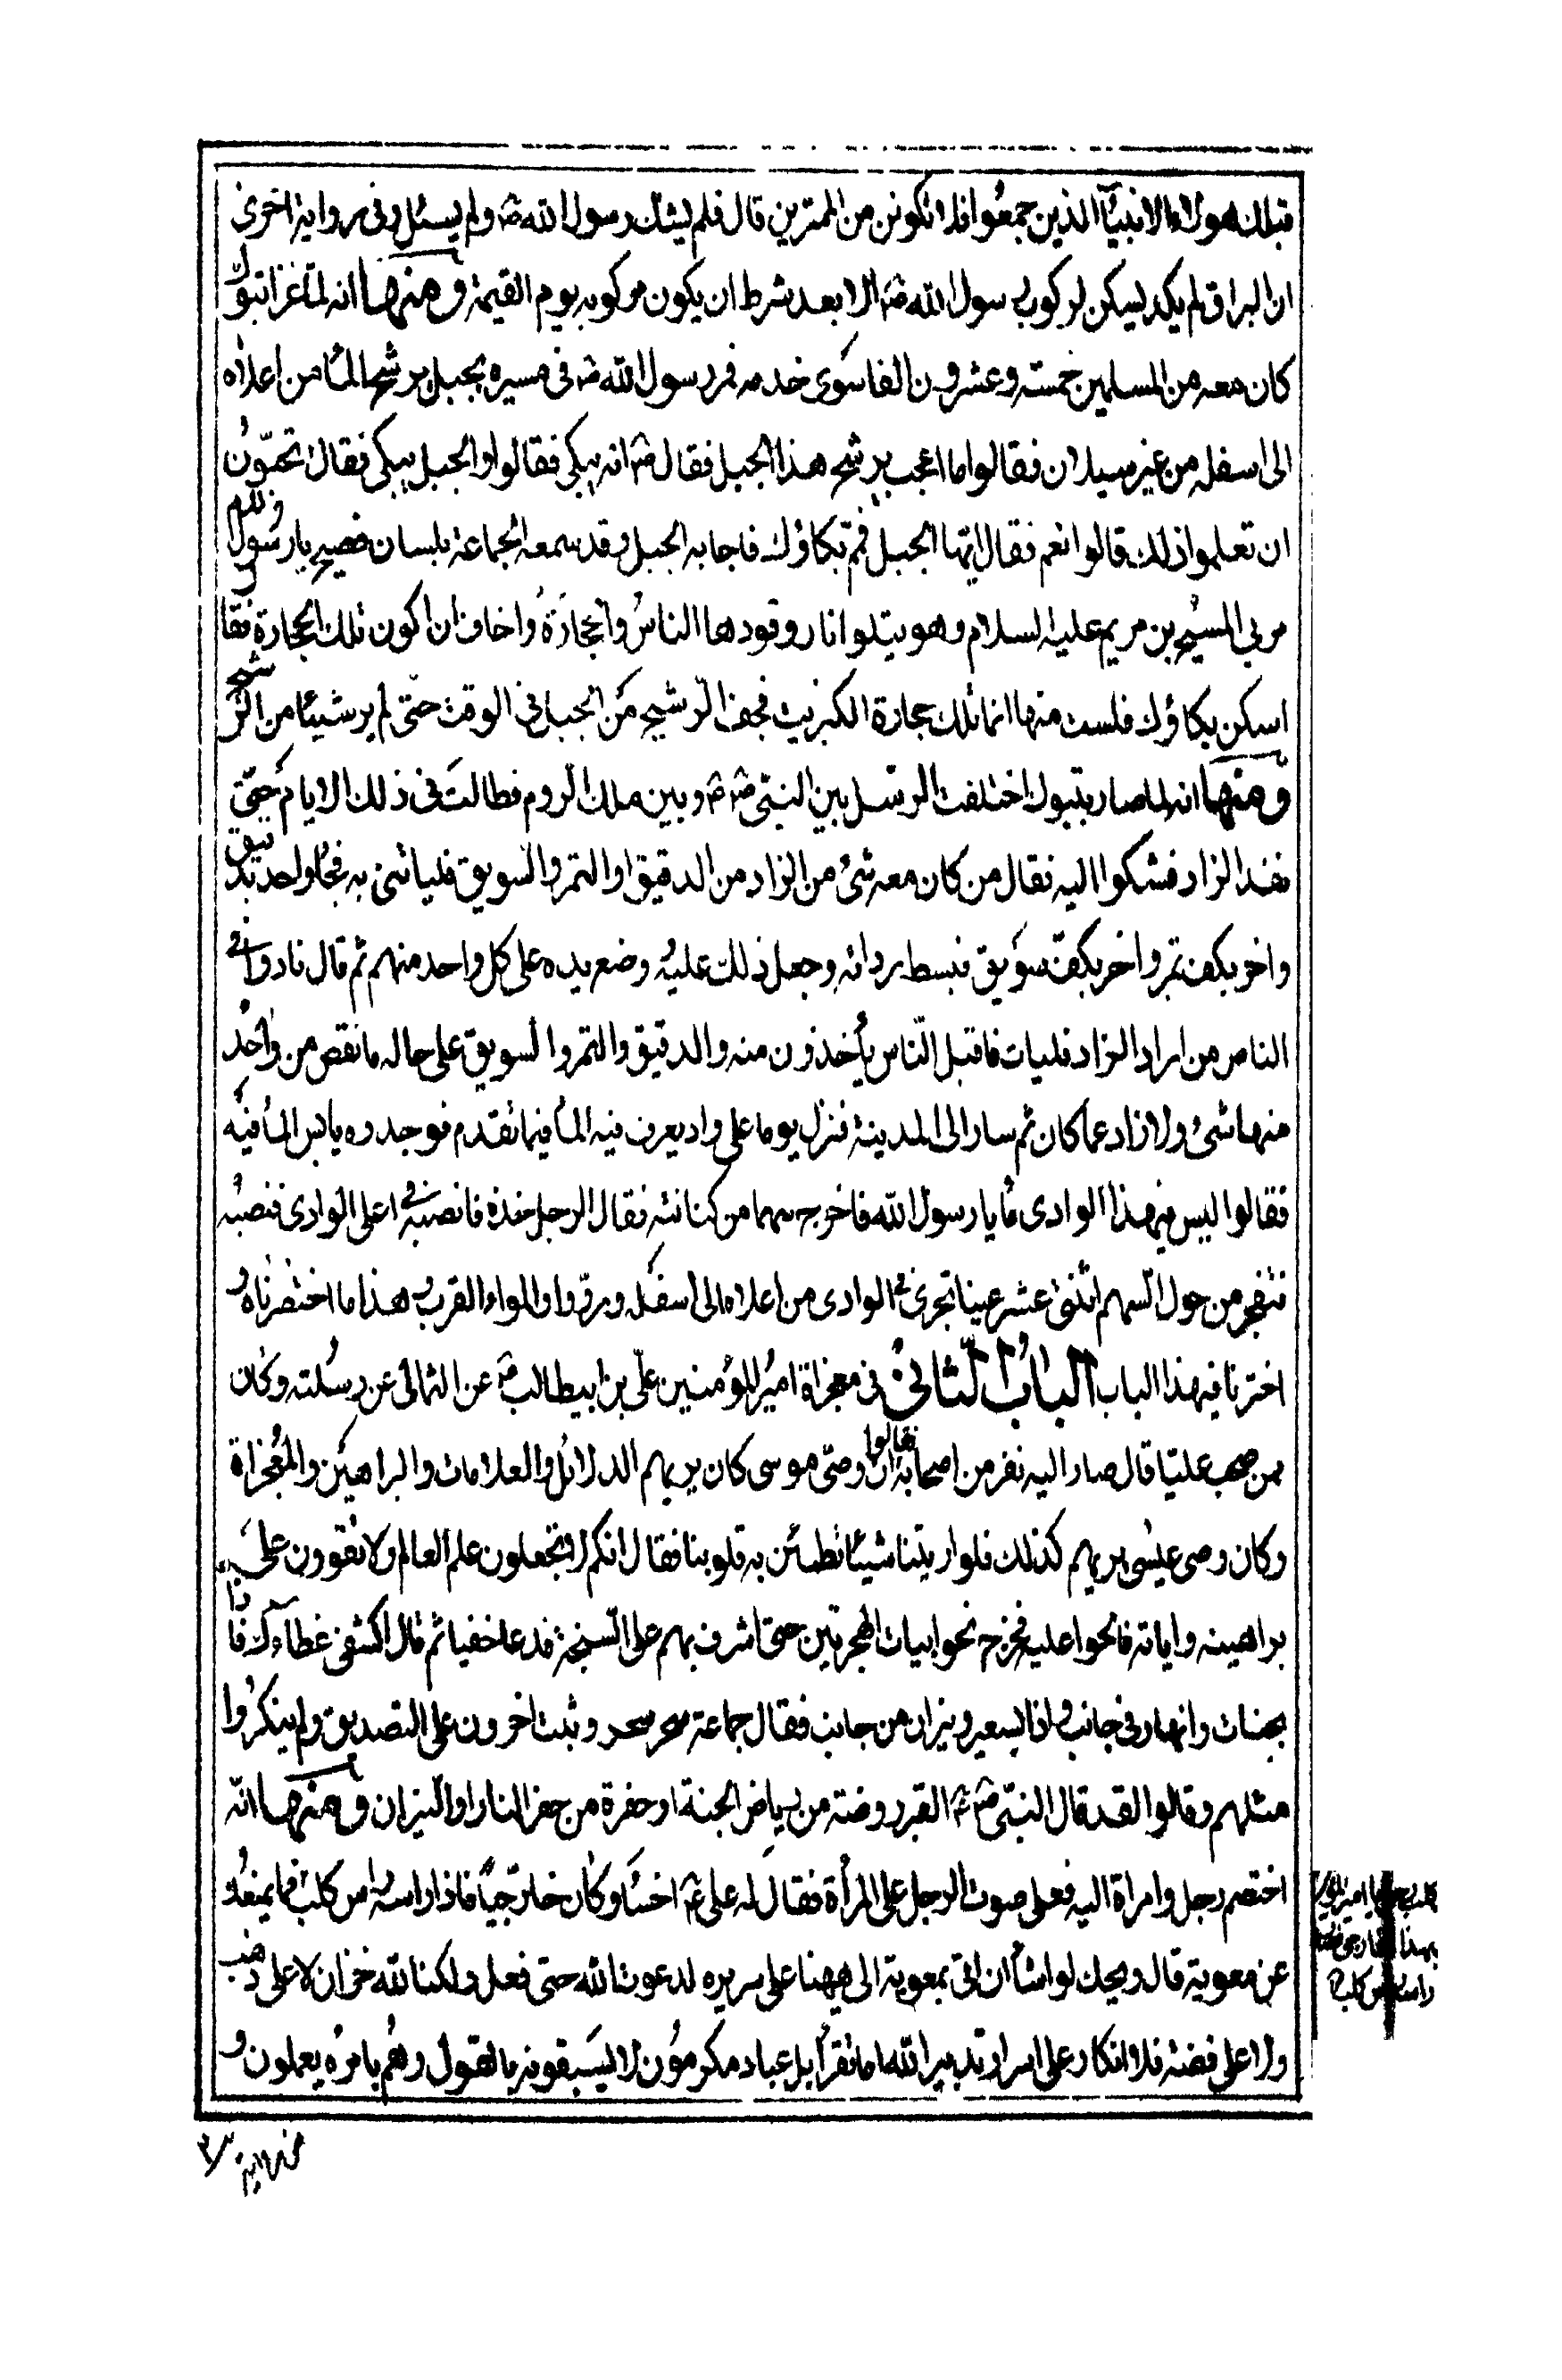 قبلك هولاء الانبيآء الذين جمعوا فلا تكونن من الممترين قال فلم يشك رسول الله ص ولم يسئل وفى رواية اخرى
ان البراق لم يكد ليسكن لركوب رسول الله ص الا بعد شرط ان يكون مركوبه يوم القيمة ومنها انه لما غزا تبوك
كان معه من المسلمين خمسة وعشرون الفا سوى خدمه فمر رسول الله ص فى مسيره بجبل يرشح الماء من اعلاه
الى اسفله من غير سيلان فقالوا ما اعجب يرشح هذا الجبل فقال ص انه يبكى فقالوا والجبل يبكى فقال تحبّون
ان تعلموا ذلك قالوا نعم فقال ايها الجبل فمم بكاؤك فاجابه الجبل وقد سمعه الجماعة بلسان فصيح يا رسول الله
مر بى المسيح بن مريم عليه السلام وهو يتلو انار وقودها الناس والحجارة واخاف ان اكون تلك الحجارة فقال
اسكن بكاؤك فلست منها انما تلك حجارة الكبريت فجف الرشيح من الجبل فى الوقت حتى لم ير شيئا من الرشح
ومنها انه لما صار بتبوك اختلفت الرسل بين النبى ص وبين ملك الروم فطالت فى ذلك الايام حتى
نفذ الزاد فشكوا اليه فقال من كان معه شئ من الزاد من الدقيق او التمر والسويق فلياتنى به فجاء واحد بدقيق
واخر بكف تمر واخر بكفّ سويق فبسط ردائه وجعل ذلك عليه وضع يده على كل واحد منهم ثم قال نادوا فى
الناس من اراد الزاد فليات فاقبل الناس يأخذون منه والدقيق والتمر والسويق على حاله ما نقص من واحد
منها شئ ولا زاد عما كان ثم سار الى المدينة فنزل يوما على واد يعرف فيه الماء فيما تقدم فوجدوه يابس الماء فيه
فقالوا ليس فى هذا الوادى ماء يا رسول الله فاخرج سهما من كنانته فقال الرجل خذه فانصبه فى اعلى الوادى فنصبه
فتفجر من حول السهم اثنتى عشر عينا تجرى فى الوادى من اعلاه الى اسفله ورووا واملوا القرب وهذا ما اختصرناه و
اخترنا فى هذا الباب الباب الثانى فى معجزاة امير المؤمنين على بن ابيطالب ع عن الثمالى عن رميلة وكان
ممن صحب عليا قال صار اليه نفر من اصحابه فقالوا ان وصى موسى كان يريهم الدلائل والعلامات والبراهين والمعجزاة
وكان وصى عيسى يريهم كذلك فلو اريتنا شيئا تطمئن به قلوبنا فقال انكم لا تحملون علم العالم ولا تقوون على
براهينه واياته فالحوا عليه فخرج نحو ابيات الهجريين حتى اشرف بهم على السبخة فدعا خفيا ثم قال اكشفى غطاءك فاذا
بجنات وانهار فى جانب واذا بسعير ونيران من جانب فقال جماعة سحر سحر وثبت اخرون على التصديق ولم ينكروا
مثلهم وقالوا لقد قال النبى ص القبر روضة من رياض الجنة او حفرة من حفر النار او النيران ومنها انه
اختصم رجل وامراة اليه فعلى صوت الرجل على المرأة فقال له على ع اخسأ وكان خارجيا فاذا راسه راس كلب فما يمنعك
عن معوية قال ويحك لو اشأ ان اتى بمعوية الى ههنا على سريره لدعوت الله حتى فعل ولكنا لله خزان لا على ذهب
ولا على فضة فلا انكار على اسرار تدبير الله اما تقرأ بل عباد مكرمون لا يسبقونه بالقول وهم بامره يعملون و